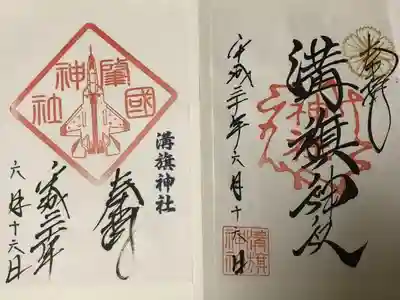 奉拝
溝旗神社
平成三十年六月十六日
溝旗神社
肇國神社
溝旗神社
奉拝
平成三十年
六月十六日